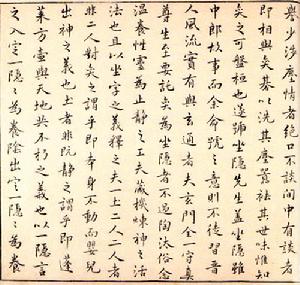 譽少涉塵情者絕口不談間中有談者
即相與矣碁以洗其塵籠祛其世味惟知
矣之可盤桓也蓬瀛坐隱先生蓋坐隱雖
中郎故事而余命號之意則不徒習晉
人風流實有與玄通者夫玄門全一守真
尊生至要託矣為坐隱者不過陶汰俗念
溫養性靈為止靜之工夫藏機煉神之活
法也且以坐字之義釋之夫一土二人二人者
非二人對矣之謂乎即本身不動而嬰兒
出神之義也土者非阮靜之謂乎即蓬
萊方壺與天地共不朽之義也以一隱言
之入定一隱之為養陰出定一隱之為養